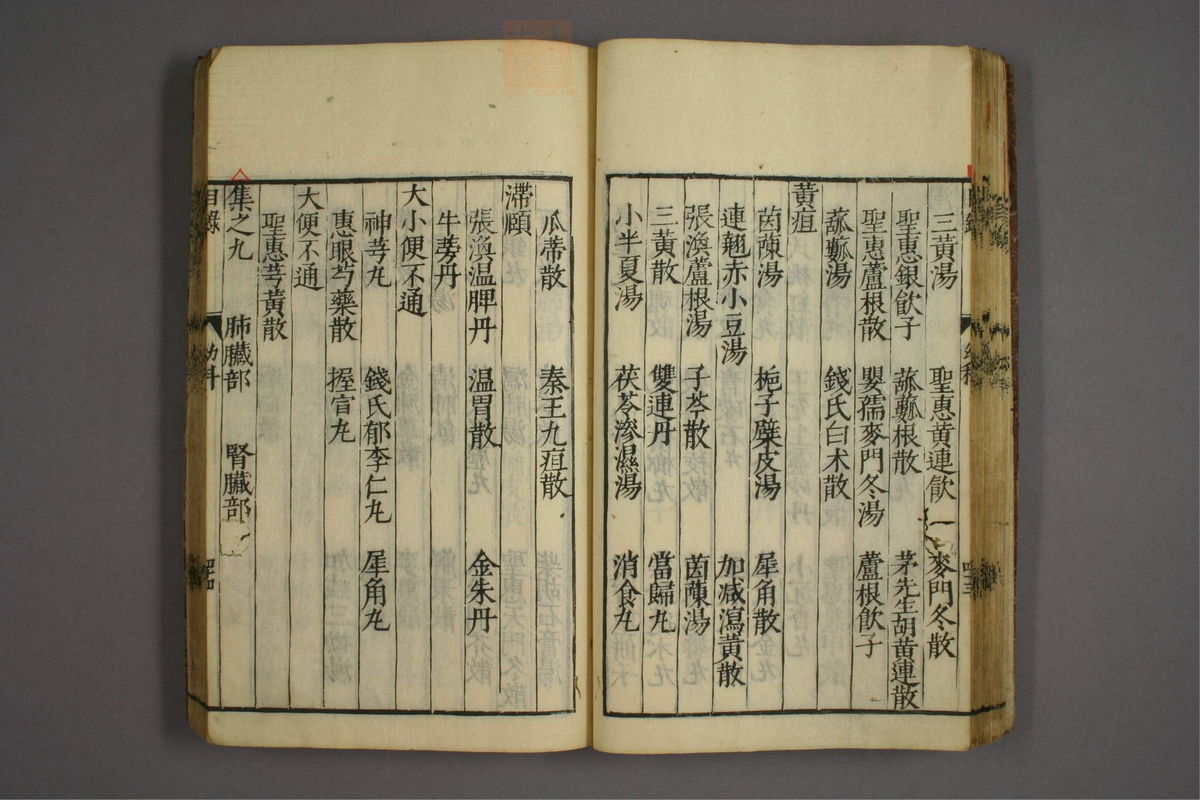 三黄湯 聖惠黄連飲 麥門冬散
聖惠銀飮子 蓏蓏根散 茅先生胡黄連散
聖惠蘆根散 嬰孺麥門冬湯 蘆根飮子
蓏湯 錢氏白术散
黄疸
茵蔯湯 梔子蘗皮湯 犀角散
連翹赤小豆湯 加减瀉黄散
張渙蘆根湯 子芩散 茵蔯湯
三黄散 雙連丹 當歸丸
小半夏湯 茯苓滲濕湯 消食丸
瓜蒂散 秦王九疸散
滯頤
張渙温脾丹 温胃散 金朱丹
牛蒡丹
大小便不通
神芎丸 錢氏郁李仁丸 犀角丸
惠眼芍藥散 握宣丸
大便不通
聖惠芎黄散
集之九 肺臟部 腎臟部
目錄 幼科